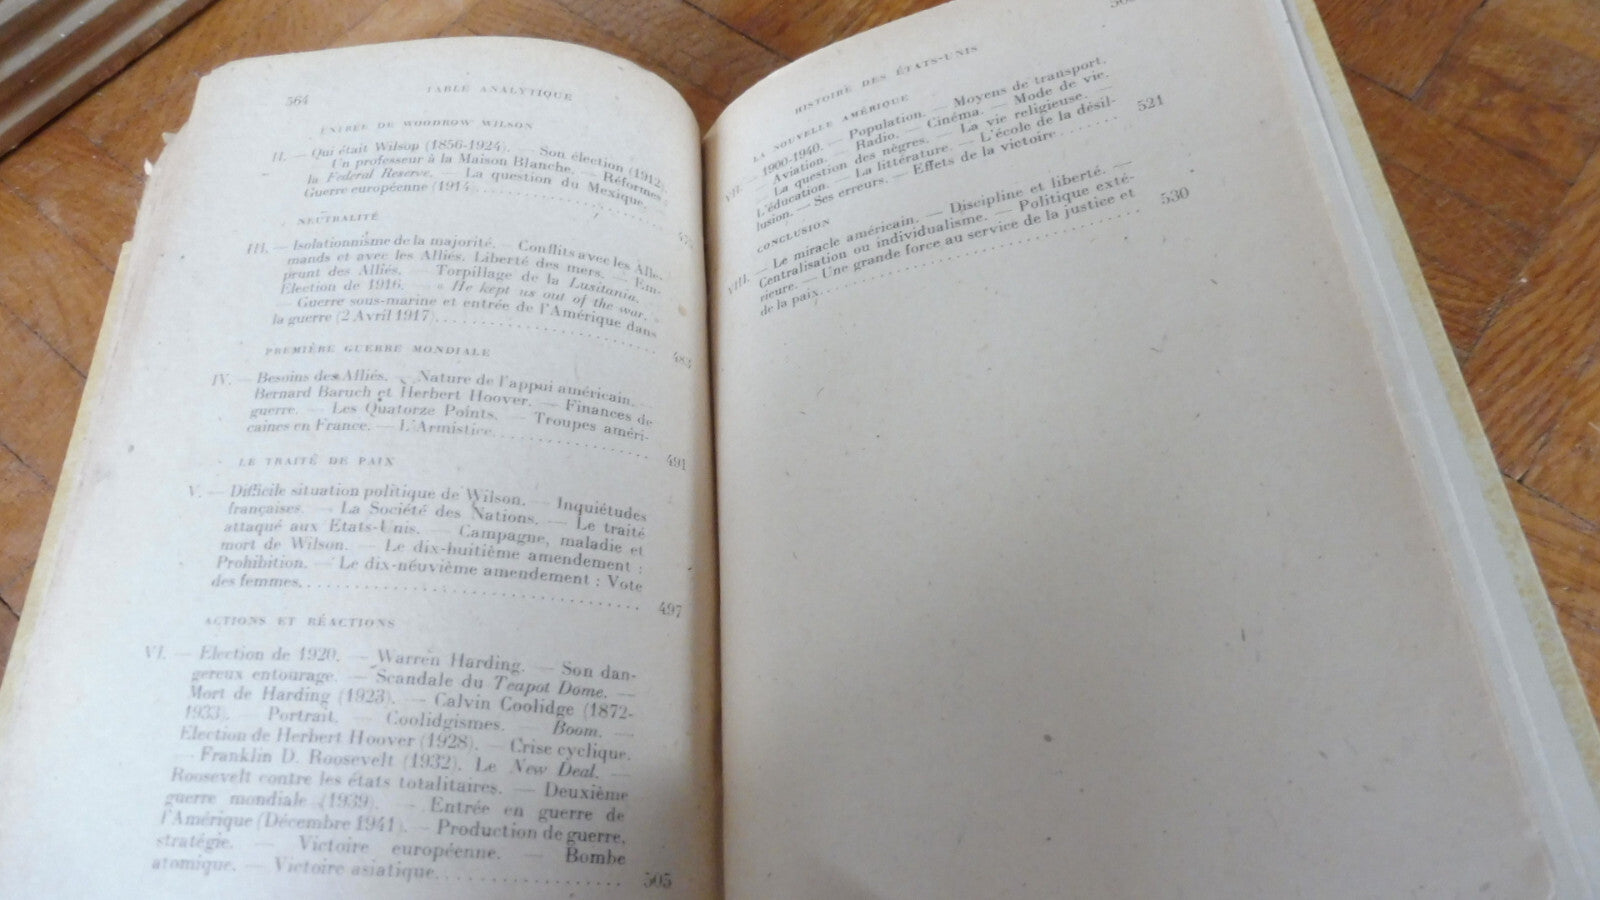 564
TABLE ANALYTIQUE
ENTRÉE DE WOODROW WILSON
II. — Qui était Wilson (1856-1924). — Son élection (1912).
Un professeur à la Maison Blanche. — Réformes :
la Federal Reserve. — La question du Mexique. —
Guerre européenne (1914)
NEUTRALITÉ
III. — Isolationnisme de la majorité. — Conflits avec les Alle-
mands et avec les Alliés. Liberté des mers. — Em-
prunt des Alliés. — Torpillage de la Lusitania. —
Election de 1916. — « He kept us out of the war. »
— Guerre sous-marine et entrée de l'Amérique dans
la guerre (2 Avril 1917)
483
PREMIÈRE GUERRE MONDIALE
IV. — Besoins des Alliés. — Nature de l'appui américain.
Bernard Baruch et Herbert Hoover. — Finances de
guerre. — Les Quatorze Points. — Troupes améri-
caines en France. — L'Armistice
491
LE TRAITÉ DE PAIX
V. — Difficile situation politique de Wilson. — Inquiétudes
françaises. — La Société des Nations. — Le traité
attaqué aux Etats-Unis. — Campagne, maladie et
mort de Wilson. — Le dix-huitième amendement :
Prohibition. — Le dix-neuvième amendement : Vote
des femmes
497
ACTIONS ET RÉACTIONS
VI. — Election de 1920. — Warren Harding. — Son dan-
gereux entourage. — Scandale du Teapot Dome. —
Mort de Harding (1923). — Calvin Coolidge (1872-
1933). — Portrait. — Coolidgismes. — Boom. —
Election de Herbert Hoover (1928). — Crise cyclique.
— Franklin D. Roosevelt (1932). Le New Deal. —
Roosevelt contre les états totalitaires. — Deuxième
guerre mondiale (1939). — Entrée en guerre de
l'Amérique (Décembre 1941). — Production de guerre,
stratégie. — Victoire européenne. — Bombe
atomique. — Victoire asiatique
505
HISTOIRE DES ÉTATS-UNIS
LA NOUVELLE AMÉRIQUE
VII. — 1900-1940. — Population. — Moyens de transport.
— Aviation. — Radio. — Cinéma. — Mode de vie.
— La question des nègres. — La vie religieuse. —
L'éducation. — La littérature. — L'école de la désil-
lusion. — Ses erreurs. — Effets de la victoire
521
CONCLUSION
VIII. — Le miracle américain. — Discipline et liberté. —
Centralisation ou individualisme. — Politique exté-
rieure. — Une grande force au service de la justice et
de la paix
530